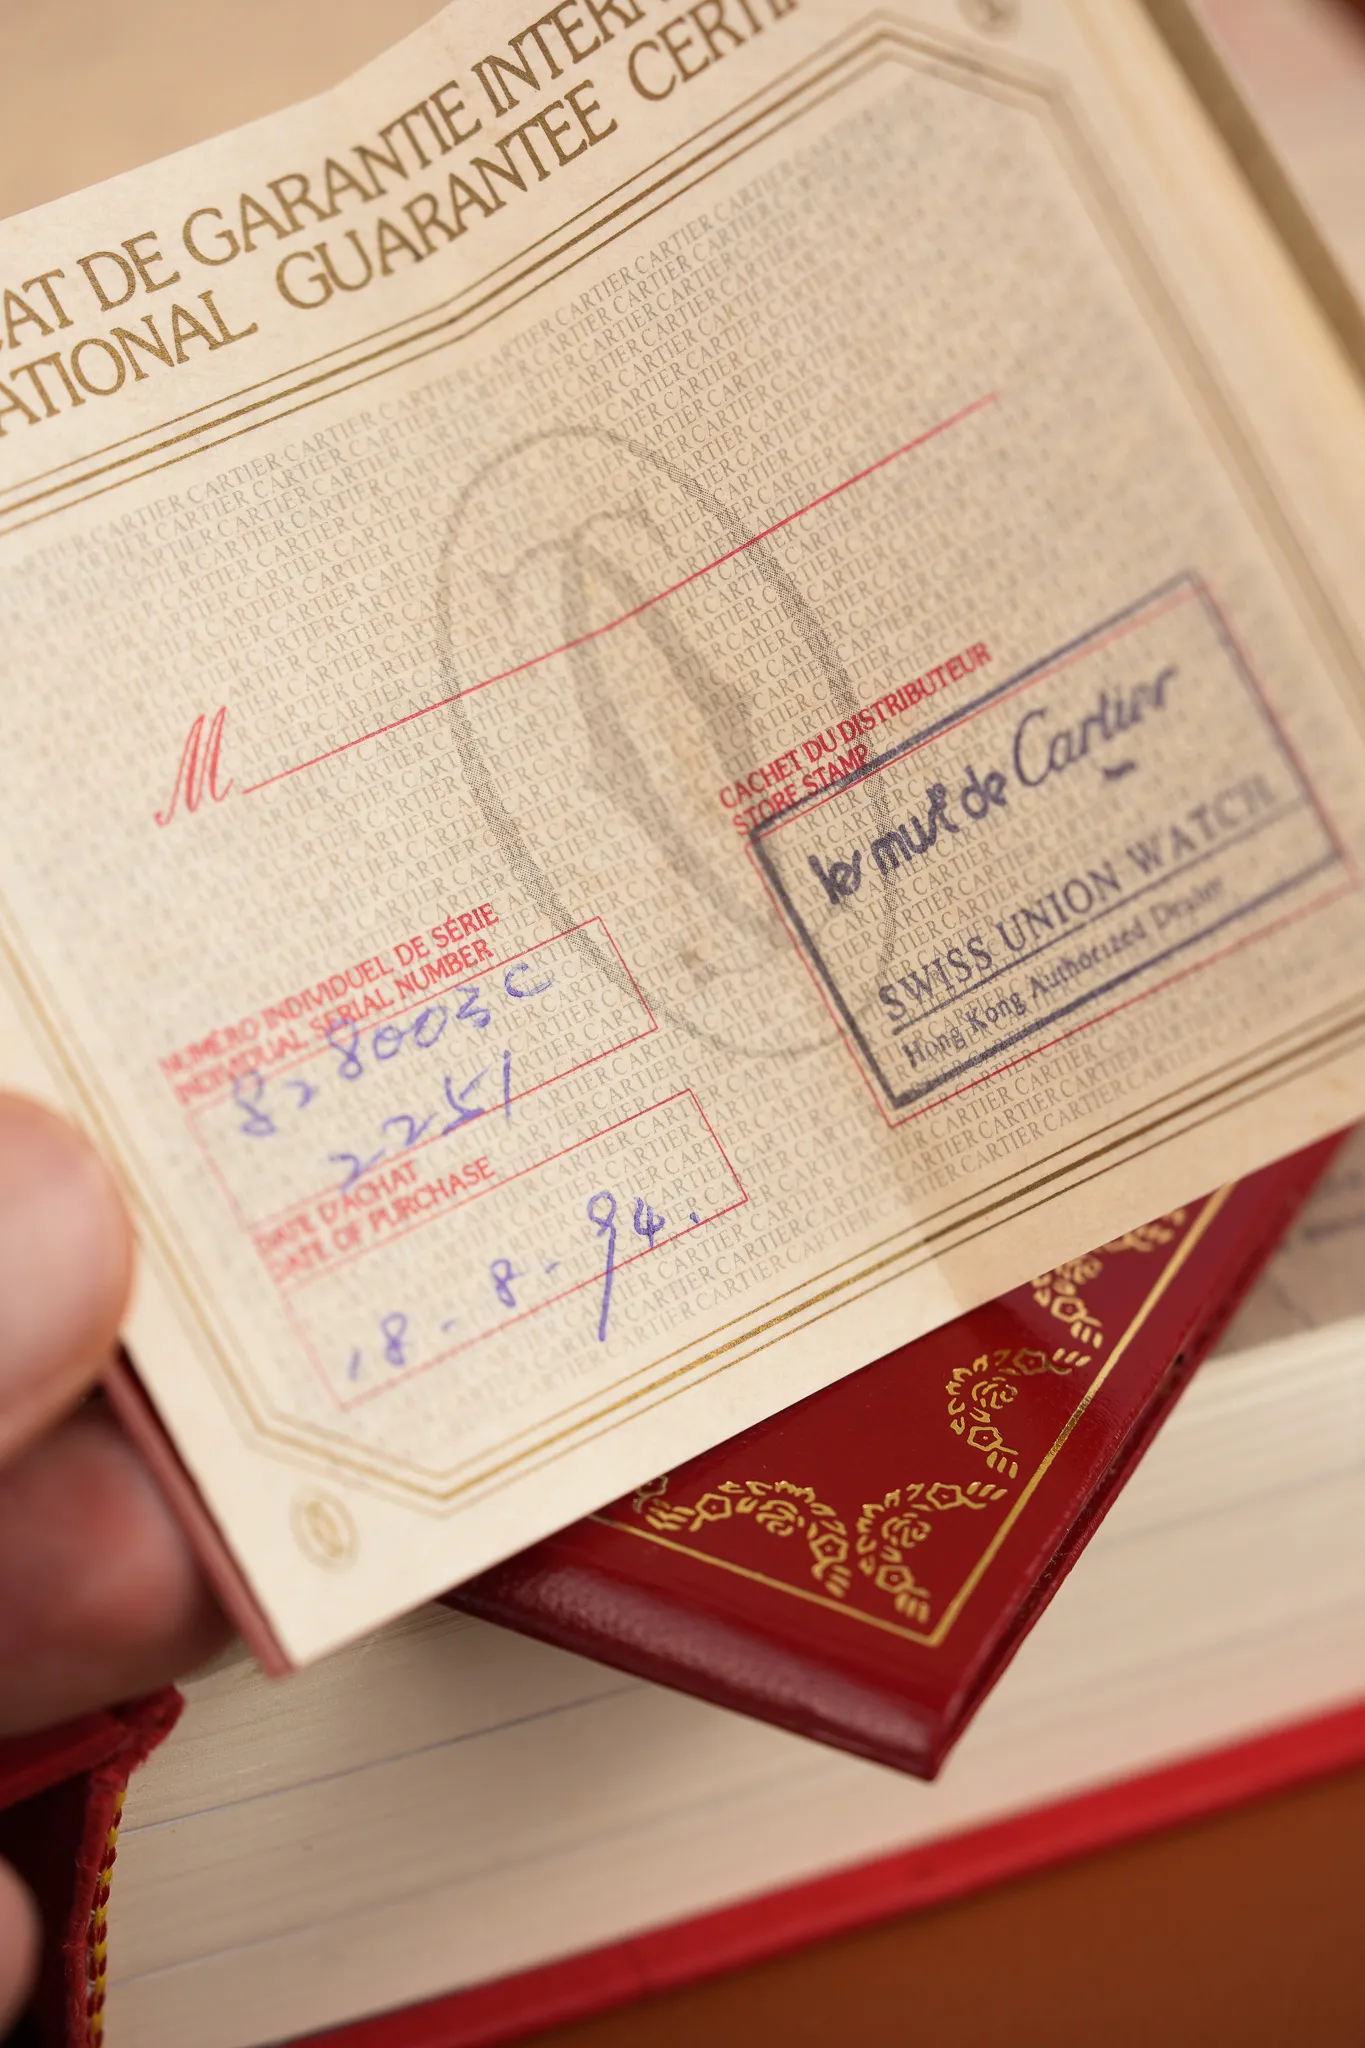 CAT DE GARANTIE INTERN
ATIONAL GUARANTEE CERTI
M
CACHET DU DISTRIBUTEUR
STORE STAMP
les must de Cartier
SWISS UNION WATCH
Hong Kong Authorized Dealer
NUMÉRO INDIVIDUEL DE SÉRIE
INDIVIDUAL SERIAL NUMBER
8003 C
2251
DATE D'ACHAT
DATE OF PURCHASE
18-8-94.